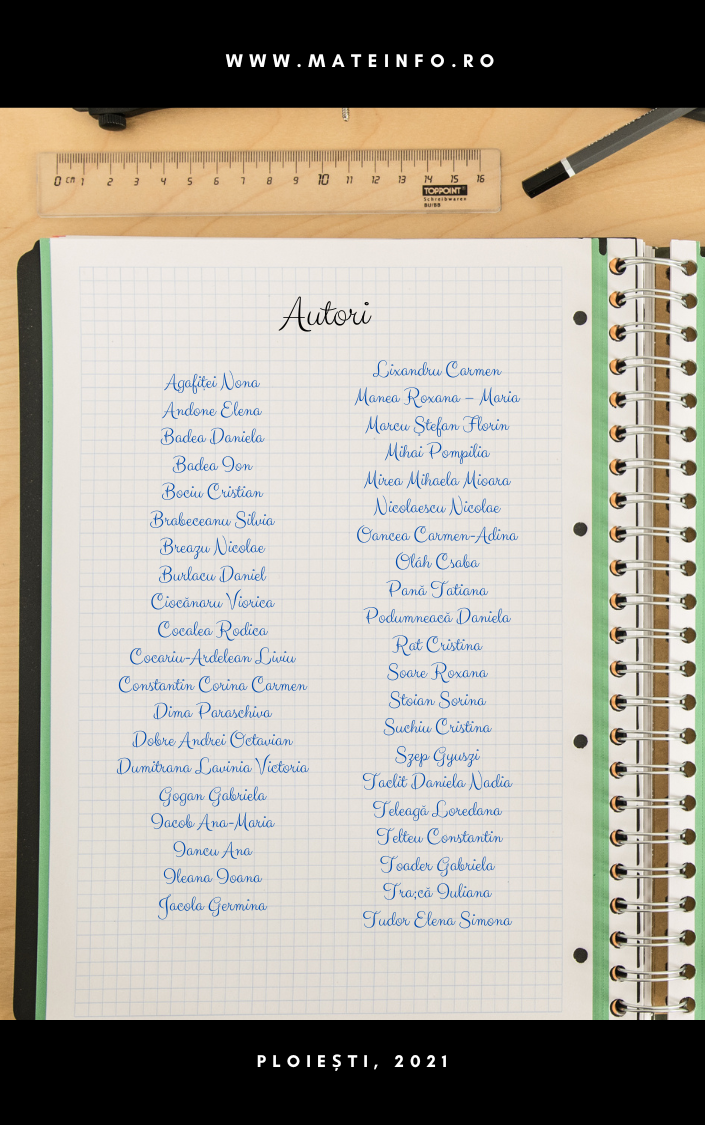 WWW.MATEINFO.RO
0 CM 1 2 3 4 5 6 7 8 9 10 11 12 13 14 15 16
TOPPOINT
Schreibwaren
Autori
Agafiței Nona
Andone Elena
Badea Daniela
Badea Ion
Bociu Cristian
Brabeceanu Silvia
Breazu Nicolae
Burlacu Daniel
Ciocănaru Viorica
Cocalea Rodica
Cocariu-Ardelean Liviu
Constantin Corina Carmen
Dima Paraschiva
Dobre Andrei Octavian
Dumitrana Lavinia Victoria
Gogan Gabriela
Iacob Ana-Maria
Iancu Ana
Ileana Ioana
Jacola Germina
Lixandru Carmen
Manea Roxana – Maria
Marcu Ștefan Florin
Mihai Pompilia
Mirea Mihaela Mioara
Nicolaescu Nicolae
Oancea Carmen-Adina
Oláh Csaba
Pană Tatiana
Podumneacă Daniela
Rat Cristina
Soare Roxana
Stoian Sorina
Suchiu Cristina
Szep Gyuszi
Taclit Daniela Nadia
Teleagă Loredana
Telteu Constantin
Toader Gabriela
Tra;că Iuliana
Tudor Elena Simona
PLOIEȘTI, 2021